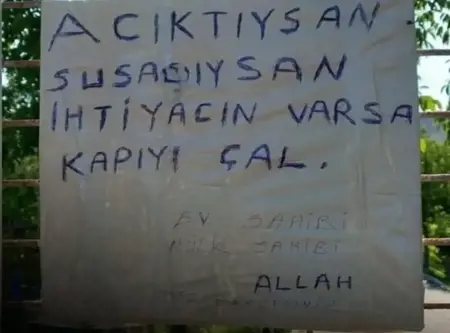 ACIKTIYSAN.
SUSADIYSAN
İHTİYACIN VARSA
KAPIYI ÇAL.
EV SAHİBİ
MÜLK SAHİBİ
ALLAH